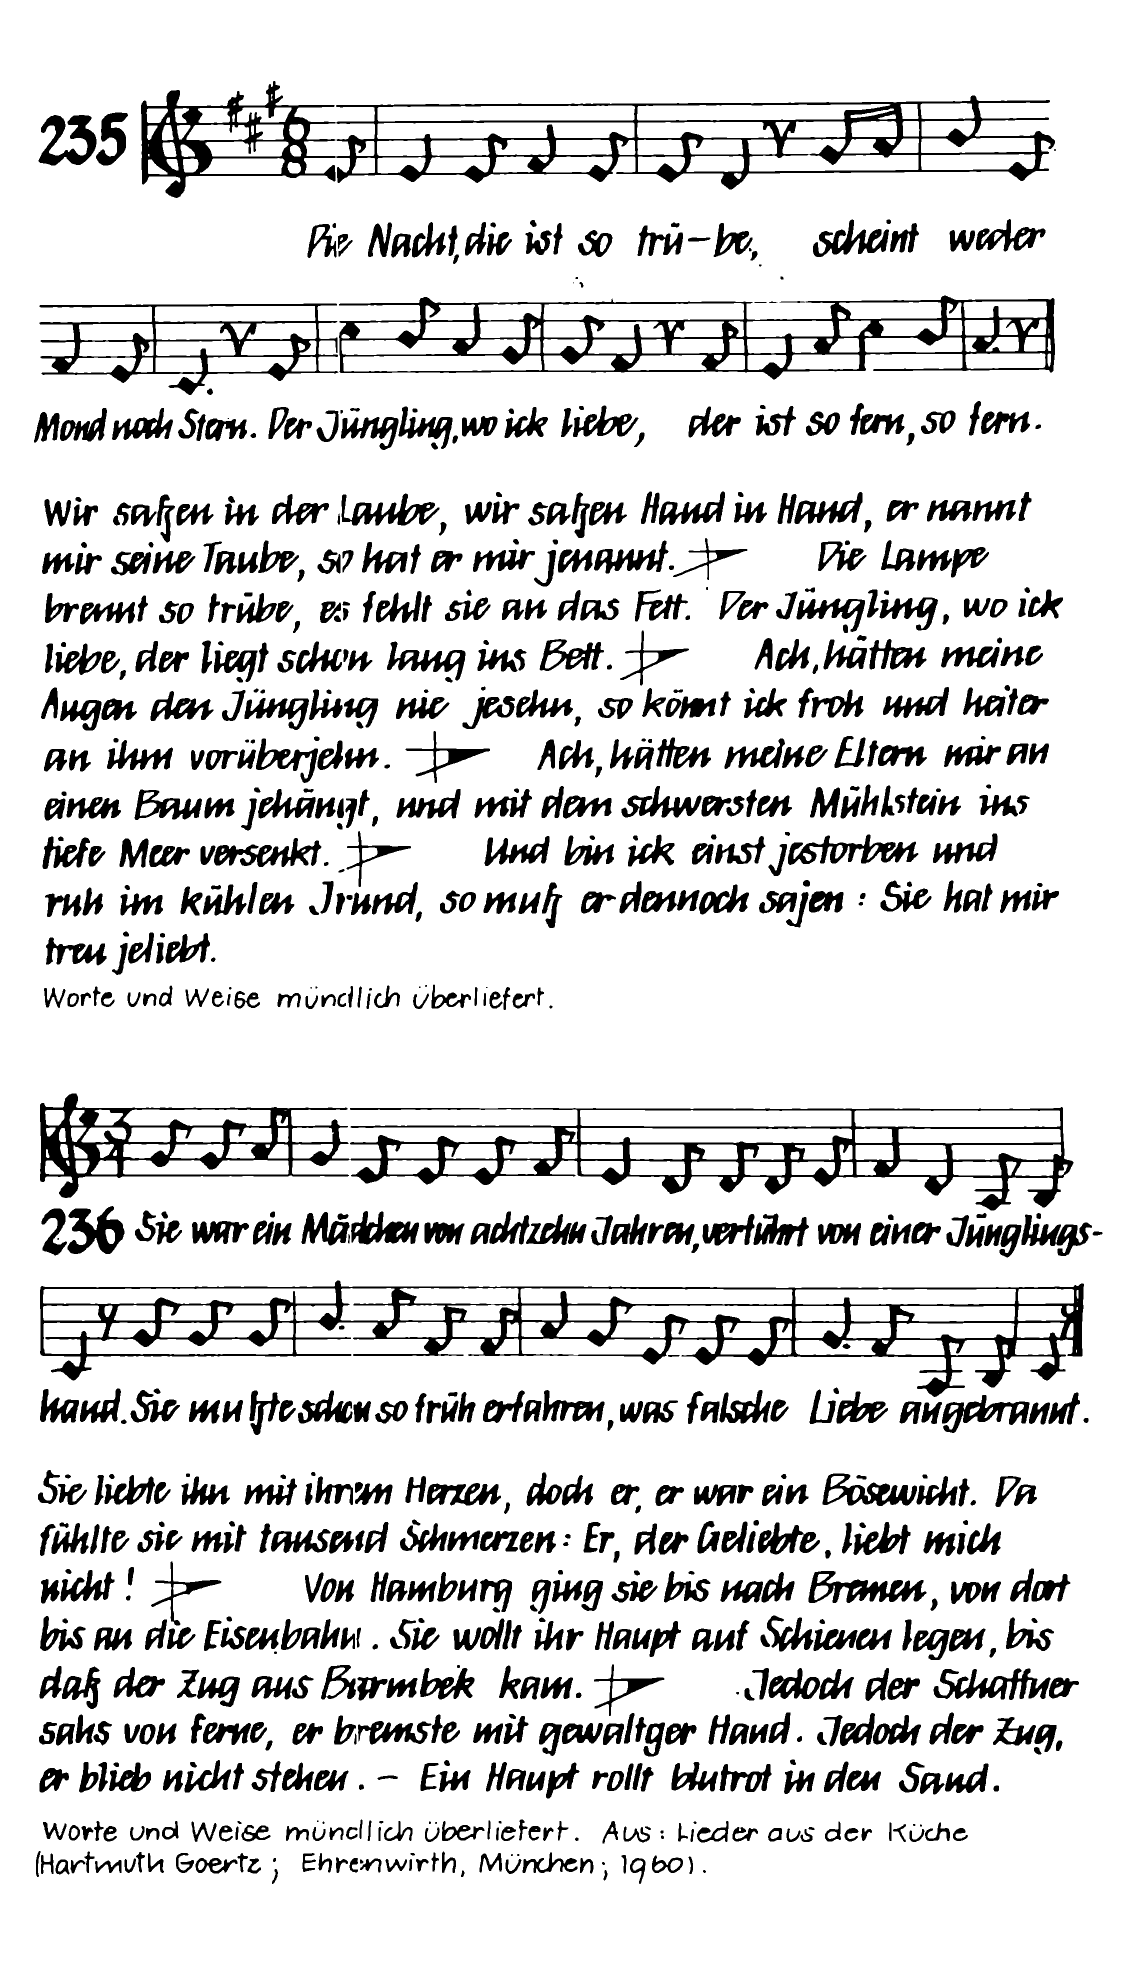 235
6
8
Die Nacht, die ist so trü-be, scheint weder
Mond noch Stern. Der Jüngling, wo ick liebe, der ist so fern, so fern.
Wir saßen in der Laube, wir saßen Hand in Hand, er nannt
mir seine Taube, so hat er mir jenannt. Die Lampe
brennt so trübe, es fehlt sie an das Fett. Der Jüngling, wo ick
liebe, der liegt schon lang ins Bett. Ach, hätten meine
Augen den Jüngling nie jesehn, so könnt ick froh und heiter
an ihm vorüberjehn. Ach, hätten meine Eltern mir an
einen Baum jehängt, und mit dem schwersten Mühlstein ins
tiefe Meer versenkt. Und bin ick einst jestorben und
ruh im kühlen Jrund, so muß er dennoch sajen: Sie hat mir
treu jeliebt.
Worte und Weise mündlich überliefert.
3
4
236 Sie war ein Mädchen von achtzehn Jahren, verführt von einer Jünglings-
hand. Sie mußte schon so früh erfahren, was falsche Liebe angebrannt.
Sie liebte ihn mit ihrem Herzen, doch er, er war ein Bösewicht. Da
fühlte sie mit tausend Schmerzen: Er, der Geliebte, liebt mich
nicht! Von Hamburg ging sie bis nach Bremen, von dort
bis an die Eisenbahn. Sie wollt ihr Haupt auf Schienen legen, bis
daß der Zug aus Barmbek kam. Jedoch der Schaffner
sahs von ferne, er bremste mit gewaltger Hand. Jedoch der Zug,
er blieb nicht stehen. – Ein Haupt rollt blutrot in den Sand.
Worte und Weise mündlich überliefert. Aus: Lieder aus der Küche
(Hartmuth Goertz; Ehrenwirth, München; 1960).